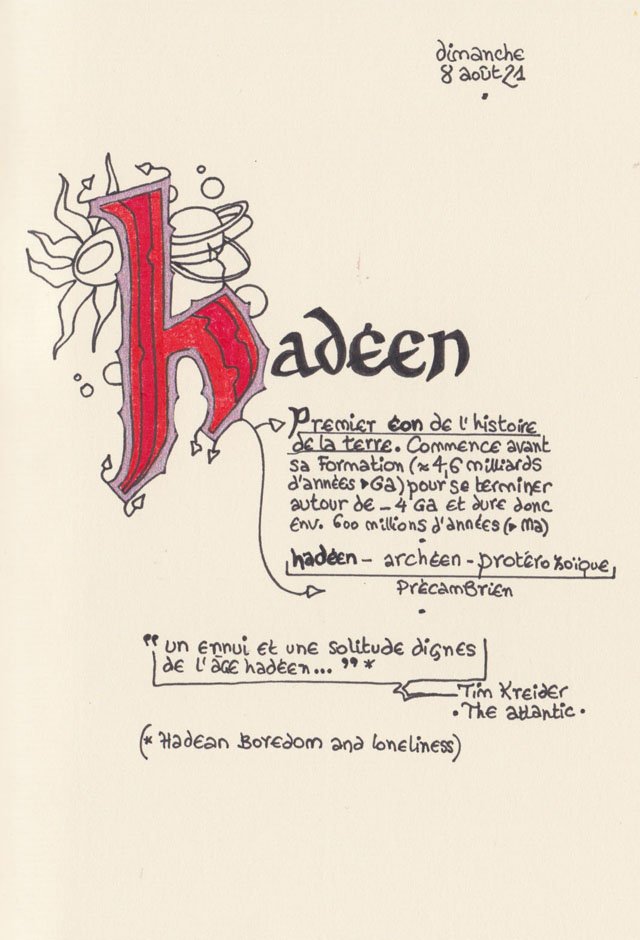 dimanche
8 août 21
hadéen
Premier éon de l'histoire
de la terre. Commence avant
sa formation (≈ 4,6 milliards
d'années ▸ Ga) pour se terminer
autour de – 4 Ga et dure donc
env. 600 millions d'années (▸ Ma)
hadéen – archéen – protérozoïque
Précambrien
" un ennui et une solitude dignes
de l'âge hadéen... " *
Tim Kreider
• The atlantic •
(* Hadean Boredom and loneliness)